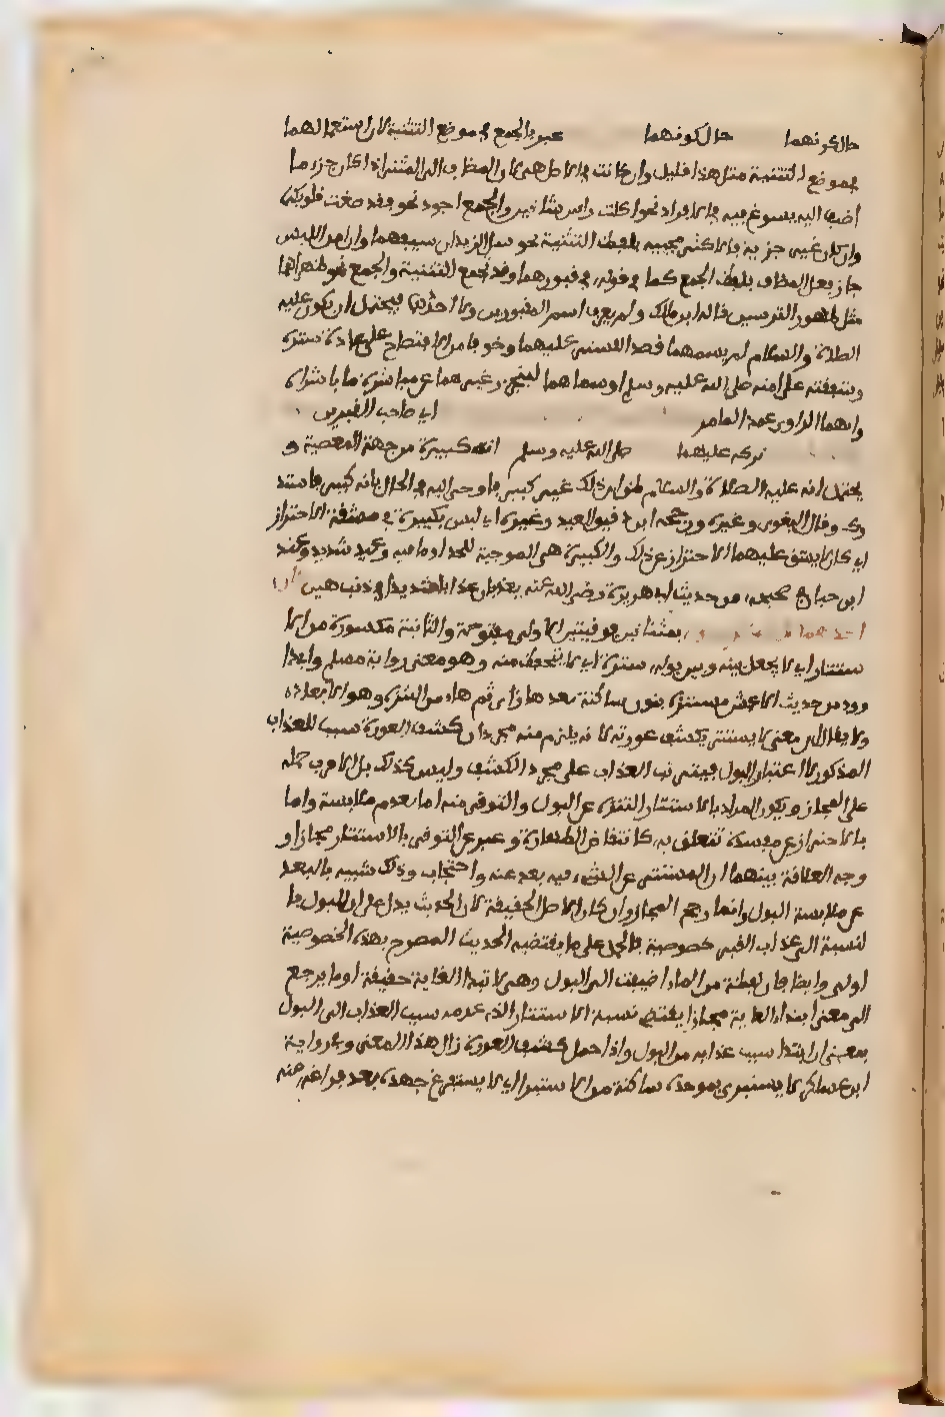 حال كونهما حال كونهما عبر بالجمع في موضع التثنية لان استعمالهما
في موضع التثنية مثل هذا قليل وان كانت هي الاصل لان المضاف الى المثنى اذا كان جزء ما
اضيف اليه يسوغ فيه الافراد نحو اكلت راس شاتين والجمع اجود نحو فقد صغت قلوبكما
وان كان غير جزيه فالاكثر مجيئه بلفظ التثنية نحو سل الزيدان سيفيهما وان امن اللبس
جاز جعل المضاف بلفظ الجمع كما في قوله في قبورهما وقد تجمع التثنية والجمع نحو ظهراهما
مثل ظهور الترسين قاله ابن مالك ولم يعرف اسم المقبورين ولا احدهما فيحتمل ان يكون عليه
الصلاة والسلام لم يسمهما قصدا للستر عليهما وخوفا من الافتضاح على عادة ستره
وشفقته على امته صلى الله عليه وسلم او سماهما ليحترز غيرهما عن مباشرة ما باشراه
وابهمهما الراوي عمدا لما مر اي صاحب القبرين
تركه عليهما صلى الله عليه وسلم انه كبيرة من جهة المعصية و
يحتمل انه عليه الصلاة والسلام ظن ان ذلك غير كبير فاوحي اليه في الحال بانه كبير فاستد
رك وقال البغوي وغيره ورجحه ابن دقيق العيد وغيره اي ليس بكبيرة في مشقة الاحتراز
اي كان لا يشق عليهما الاحتراز عن ذلك والكبيرة هي الموجبة للحد او ما فيه وعيد شديد وعند
ابن حبان في صحيحه من حديث ابي هريرة رضي الله عنه يعذبان عذابا شديدا في ذنب هين
بمثناتين فوقيتين الاولى مفتوحة والثانية مكسورة من الا
ستتار اي لا يجعل بينه وبين بوله سترة اي لا يتحفظ منه وهو معنى رواية مسلم وابي دا
وود من حديث الاعمش يستنزه بنون ساكنة بعدها زاي ثم هاء من التنزه وهو الابعاد
ولا يقال ان معنى لا يستتر يكشف عورته لانه يلزم منه مجرد ان كشف العورة سبب للعذاب
المذكور لا اعتبار البول فيترتب العذاب على مجرد الكشف وليس كذلك بل الاقرب حمله
على المجاز ويكون المراد بالاستتار التنزه عن البول والتوقي منه اما بعدم ملابسته واما
بالاحتراز عن مفسدة تتعلق به كانتقاض الطهارة وعبر عن التوقي بالاستتار مجازا و
وجه العلاقة بينهما ان المستتر عن الشيء فيه بعد عنه واحتجاب وذلك شبيه بالبعد
عن ملابسة البول وانما رجح المجاز وان كان الاصل الحقيقة لان الحديث يدل على ان للبول با
لنسبة الى عذاب القبر خصوصية فالحمل على ما يقتضيه الحديث المصرح بهذه الخصوصية
اولى وايضا فان لفظة من لما اضيفت الى البول وهي لابتداء الغاية حقيقة او ما يرجع
الى معنى ابتداء الغاية مجازا يقتضي نسبة الاستتار الذي عدمه سبب العذاب الى البول
بمعنى ان ابتدا سبب عذابه من البول واذا حمل كشف العورة زال هذا المعنى وفي رواية
ابن عساكر لا يستبرئ بموحدة ساكنة من الاستبراء اي لا يستفرغ جهده بعد فراغه منه